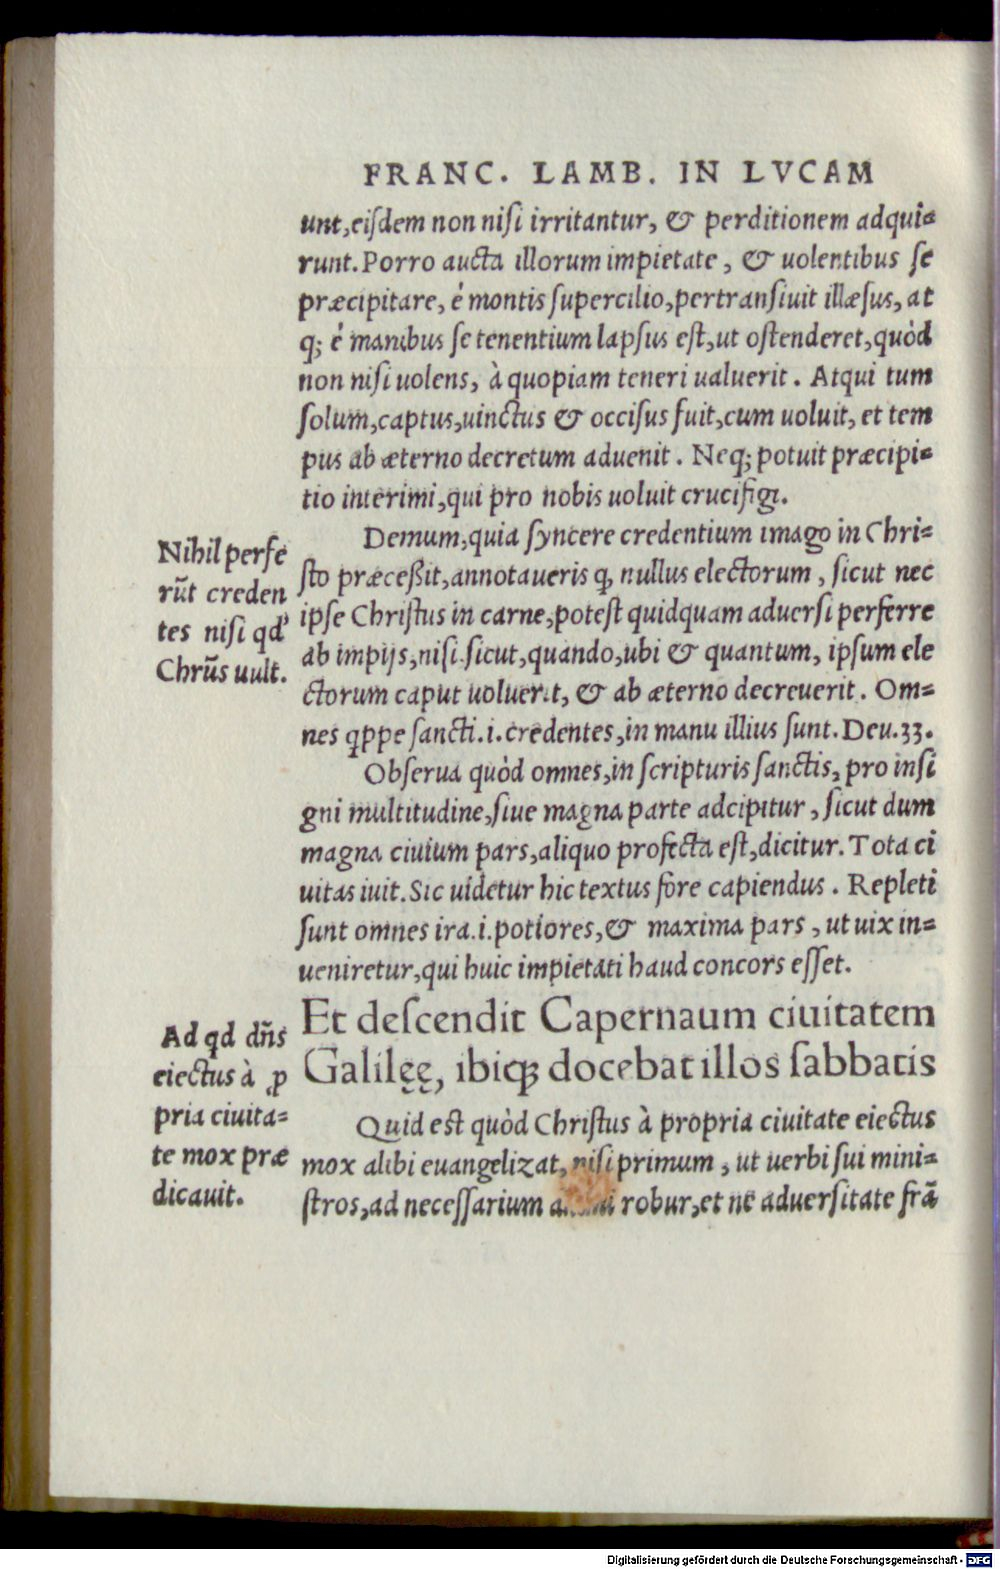 FRANC. LAMB. IN LVCAM
unt,eiſdem non niſi irritantur, & perditionem adqui-
runt. Porro aucta illorum impietate, & uolentibus ſe
præcipitare, é montis ſupercilio,pertranſiuit illæſus, at
q; é manibus ſe tenentium lapſus eſt,ut oſtenderet,quòd
non niſi uolens, à quopiam teneri ualuerit. Atqui tum
ſolum,captus,uinctus & occiſus fuit,cum uoluit, et tem
pus ab æterno decretum aduenit. Neq; potuit præcipi-
tio interimi,qui pro nobis uoluit crucifigi.
Demum,quia ſyncere credentium imago in Chri-
ſto præceßit,annotaueris ꝙ nullus electorum, ſicut nec
ipſe Chriſtus in carne,poteſt quidquam aduerſi perferre
ab impijs,niſi ſicut,quando,ubi & quantum, ipſum ele
ctorum caput uoluerit, & ab æterno decreuerit. Om-
nes qppe ſancti.i.credentes,in manu illius ſunt. Deu.33.
Obſerua quòd omnes,in ſcripturis ſanctis, pro inſi
gni multitudine,ſiue magna parte adcipitur, ſicut dum
magna ciuium pars,aliquo profecta eſt,dicitur. Tota ci
uitas iuit. Sic uidetur hic textus fore capiendus. Repleti
ſunt omnes ira.i.potiores,& maxima pars, ut uix in-
ueniretur,qui huic impietati haud concors eſſet.
Et deſcendit Capernaum ciuitatem
Galilęę, ibiqꝫ docebat illos ſabbatis
Quid est quòd Chriſtus à propria ciuitate eiectus
mox alibi euangelizat, niſi primum, ut uerbi ſui mini-
ſtros,ad neceſſarium robur,et ne aduerſitate frā
Nihil perfe
rūt creden
tes niſi qd
Chrūs uult.
Ad qd dñs
eiectus à ꝓ
pria ciuita-
te mox præ
dicauit.
Digitalisierung gefördert durch die Deutsche Forschungsgemeinschaft - DFG